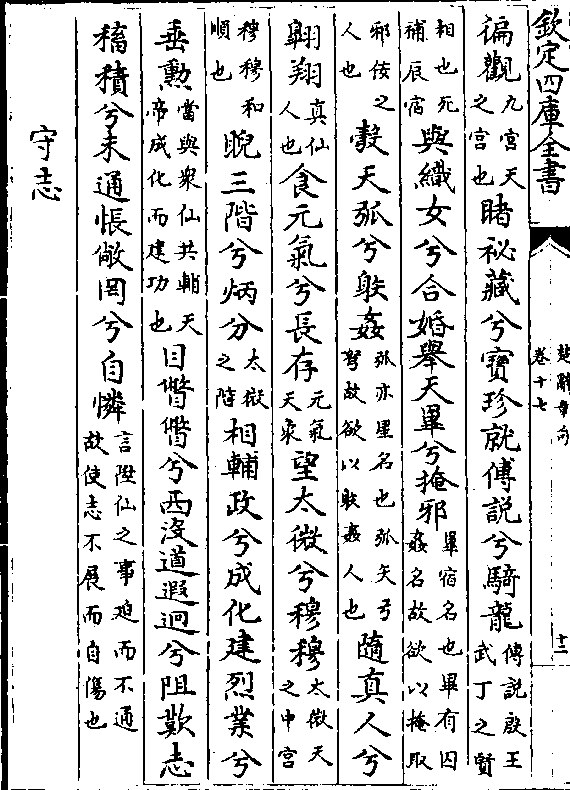 欽定四庫全書
楚辭章句
卷十七
十二
徧觀九宮天之宮也睹祕藏兮寶珍就傅說兮騎龍傅說殷王武丁之賢
相也死補辰宿與織女兮合婚舉天畢兮掩邪畢宿名也畢有囚姦名故欲以掩取
邪佞之人也彀天弧兮䠶姦弧亦星名也弧矢弓弩故欲以䠶姦人也隨真人兮
翺翔真仙人也食元氣兮長存元氣天氣望太微兮穆穆太微天之中宮
穆穆和順也睨三階兮炳分太微之階相輔政兮成化建烈業兮
垂勲當與衆仙共輔天帝成化而建功也目瞥瞥兮西沒道遐迥兮阻歎志
稸積兮未通悵敞罔兮自憐言陞仙之事廹而不通故使志不展而自傷也
守志